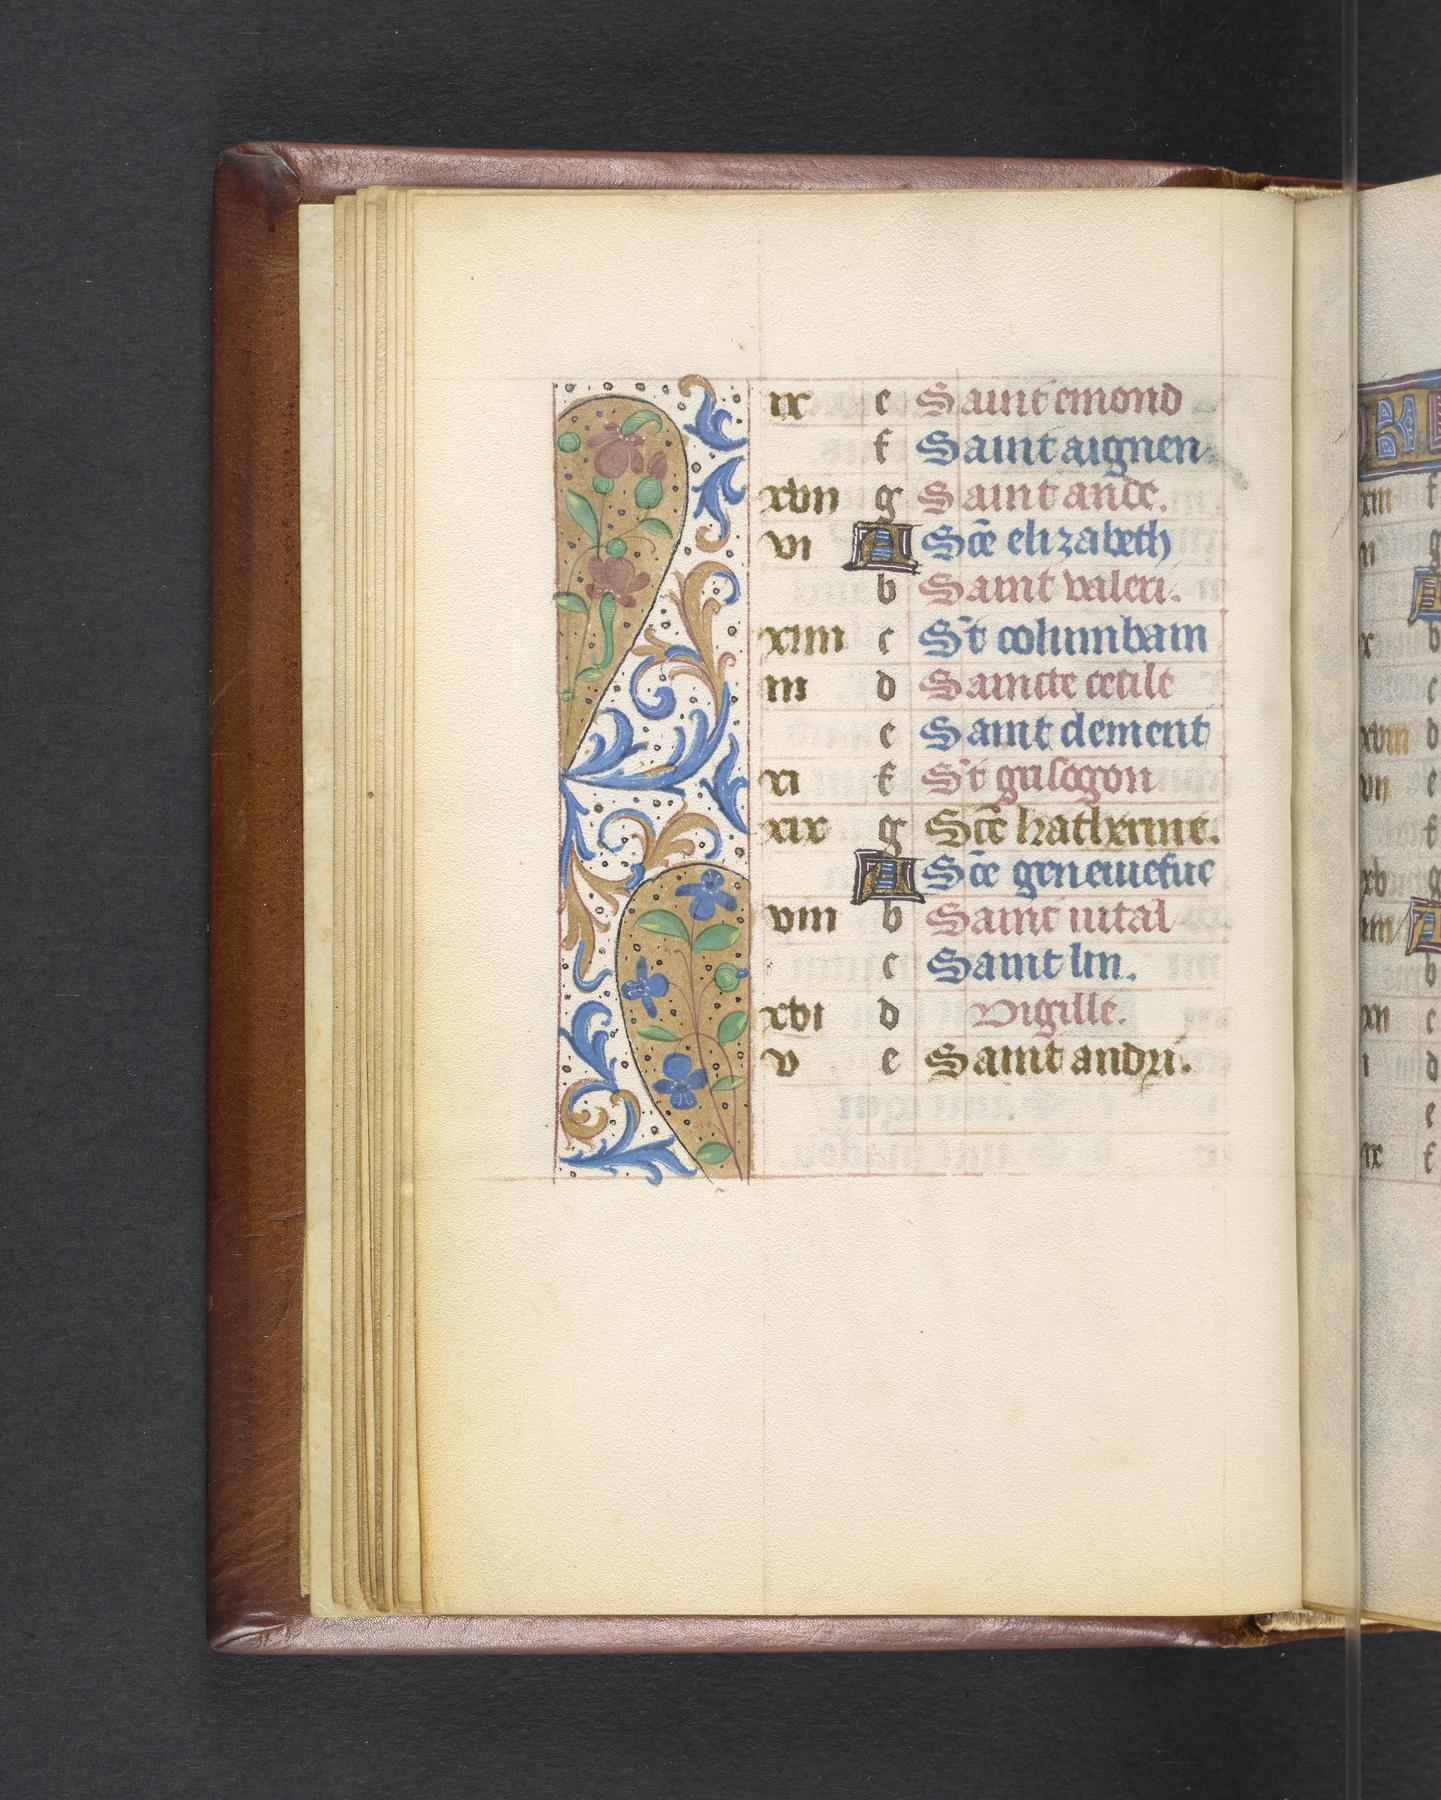 ix e Saint emond
f Saint aignen
xvii g Saint ande.
vi A Sc̄e elizabeth
b Saint valeri.
xiiii c S't columbain
iii d Saincte cecile
e Saint clement
xi f S't grisogon
xix g Sc̄e katherine.
A Sc̄e geneviefue
viii b Saint vital
c Saint lin.
xvi d Vigille.
v e Saint andri.
xiii f
ii g
A
x b
c
xviii d
vii e
f
xv g
iiii A
b
xii c
i d
e
ix f